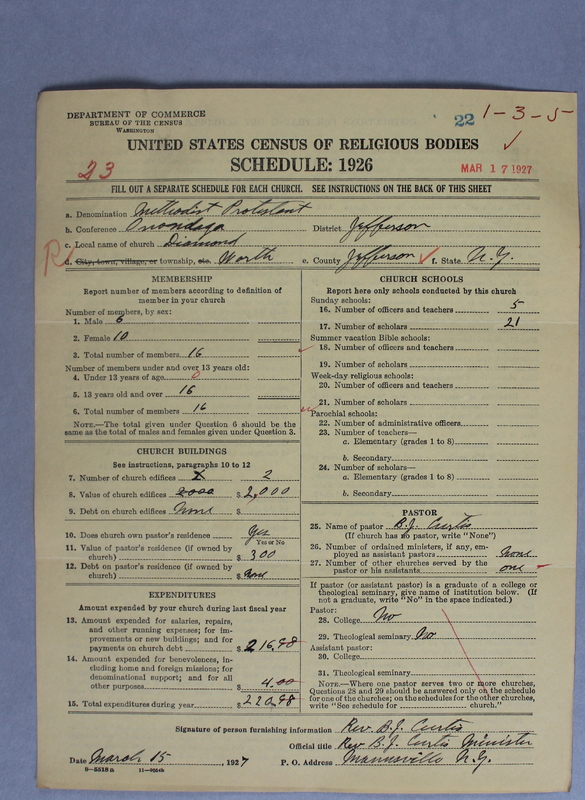 DEPARTMENT OF COMMERCE
BUREAU OF THE CENSUS
WASHINGTON
22 1-3-5
UNITED STATES CENSUS OF RELIGIOUS BODIES
23
SCHEDULE: 1926
MAR 17 1927
FILL OUT A SEPARATE SCHEDULE FOR EACH CHURCH. SEE INSTRUCTIONS ON THE BACK OF THIS SHEET
a. Denomination Methodist Protestant
b. Conference Onondaga District Jefferson
c. Local name of church Diamond
R d. City, town, village, or township, etc. Worth e. County Jefferson f. State N.Y.
MEMBERSHIP
Report number of members according to definition of
member in your church
Number of members, by sex:
1. Male 6
2. Female 10
3. Total number of members 16
Number of members under and over 13 years old:
4. Under 13 years of age 0
5. 13 years old and over 16
6. Total number of members 16
NOTE.—The total given under Question 6 should be the
same as the total of males and females given under Question 3.
CHURCH BUILDINGS
See instructions, paragraphs 10 to 12
7. Number of church edifices 2
8. Value of church edifices 2000 $ 2,000
9. Debt on church edifices None $
10. Does church own pastor's residence Yes
Yes or No
11. Value of pastor's residence (if owned by
church) $ 300
12. Debt on pastor's residence (if owned by
church) $ None
EXPENDITURES
Amount expended by your church during last fiscal year
13. Amount expended for salaries, repairs,
and other running expenses; for im-
provements or new buildings; and for
payments on church debt $ 216.98
14. Amount expended for benevolences, in-
cluding home and foreign missions; for
denominational support; and for all
other purposes $ 4.00
15. Total expenditures during year $ 220.98
CHURCH SCHOOLS
Report here only schools conducted by this church
Sunday schools:
16. Number of officers and teachers 5
17. Number of scholars 21
Summer vacation Bible schools:
18. Number of officers and teachers
19. Number of scholars
Week-day religious schools:
20. Number of officers and teachers
21. Number of scholars
Parochial schools:
22. Number of administrative officers
23. Number of teachers—
a. Elementary (grades 1 to 8)
b. Secondary
24. Number of scholars—
a. Elementary (grades 1 to 8)
b. Secondary
PASTOR
25. Name of pastor B.J. Curtis
(If church has no pastor, write "None")
26. Number of ordained ministers, if any, em-
ployed as assistant pastors None
27. Number of other churches served by the
pastor or his assistants one
If pastor (or assistant pastor) is a graduate of a college or
theological seminary, give name of institution below. (If
not a graduate, write "No" in the space indicated.)
Pastor:
28. College No
29. Theological seminary No
Assistant pastor:
30. College
31. Theological seminary
NOTE.—Where one pastor serves two or more churches,
Questions 28 and 29 should be answered only on the schedule
for one of the churches; on the schedules for the other churches,
write "See schedule for church."
Signature of person furnishing information Rev. B.J. Curtis
Official title Rev. B.J. Curtis Minister
Date March 15, 1927 P. O. Address Mannsville N.Y.